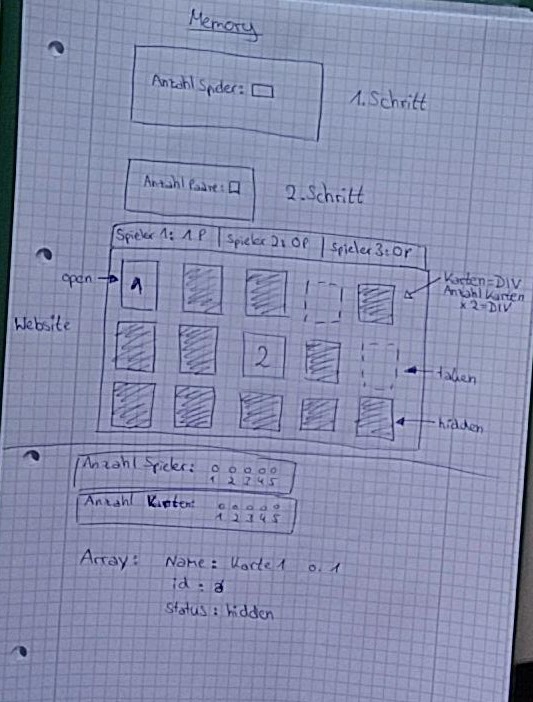 Memory
Anzahl Spieler:
1. Schritt
Anzahl Paare:
2. Schritt
Spieler 1: 1P Spieler 2: 0P Spieler 3: 0P
open
1
Karten = DIV
Anzahl Karten
x 2 = DIV
Website
2
taken
hidden
Anzahl Spieler:
1 2 3 4 5
Anzahl Karten:
1 2 3 4 5
Array: Name: Karte 1
id:
Status: hidden